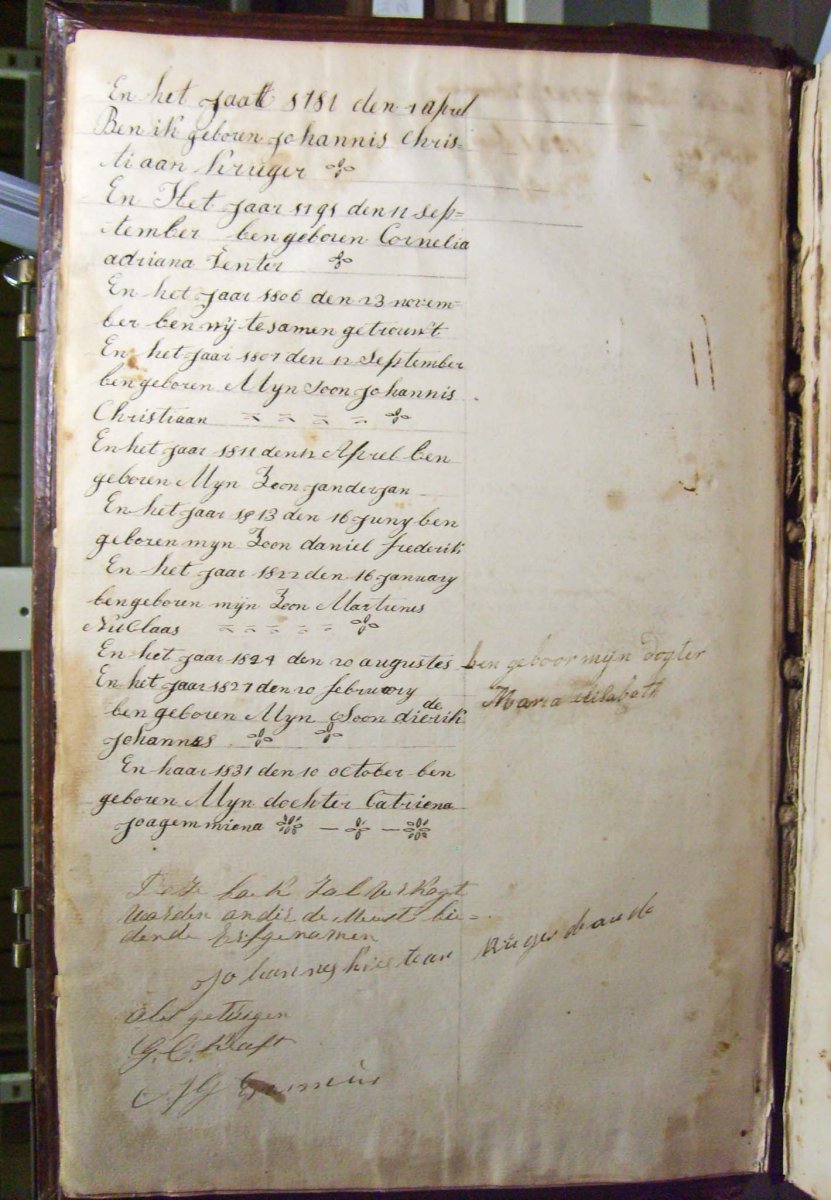 En het Jaar 1781 den 1 april
Ben ik geboren Johannis Chris-
tiaan Kruger
En Het Jaar 1791 den 11 Sep=
tember ben geboren Cornelia
adriana Venter
En het Jaar 1806 den 23 novem-
ber ben wij tesamen getrouw't
En het Jaar 1807 den 12 September
ben geboren Myn Soon Johannis
Christiaan
En het Jaar 1811 den 12 April ben
geboren Myn Zoon Janderjan
En het Jaar 1813 den 16 Juny ben
geboren myn Zoon daniel frederik
En het Jaar 1822 den 16 January
ben geboren mijn Zoon Martienes
Niclaas
En het Jaar 1824 den 20 augustes ben geboor mijn dogter
Maria
En het Jaar 1827 den 20 february
ben geboren Myn Soon diederik
Johannes
En haar 1831 den 10 october ben
geboren Myn dochter Catriena
Joagemmiena
Boek Zal verkogt
worden onder de Meest bie=
dende Erfgenamen
Als getuigen
G. C.